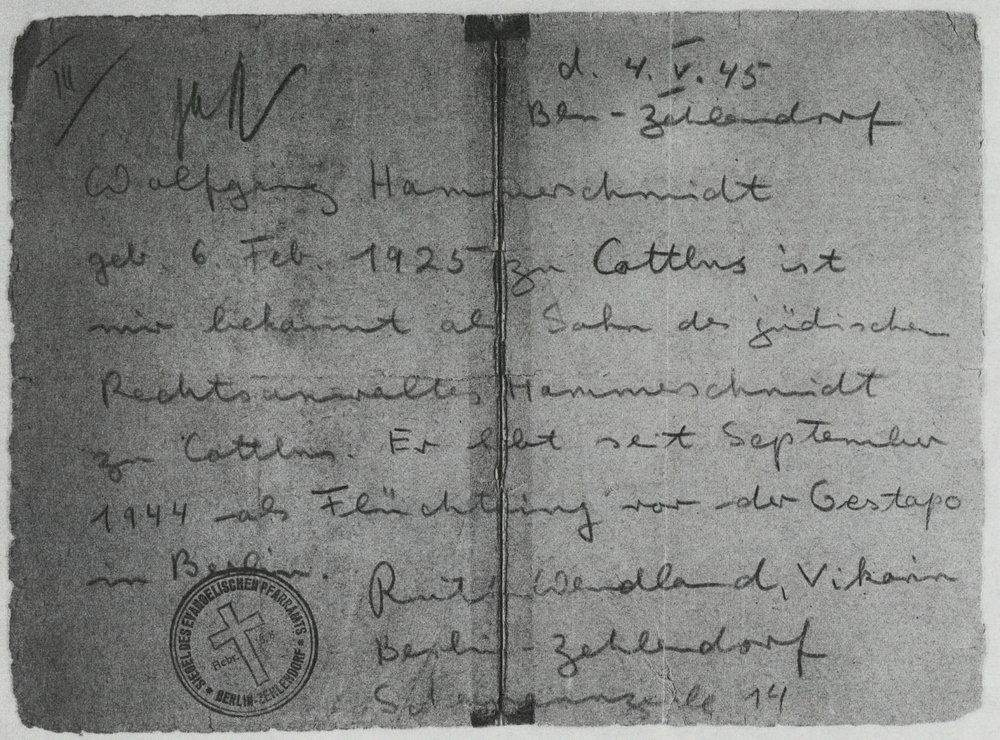 III
d. 4. V. 45
Bln-Zehlendorf
Wolfgang Hammerschmidt
geb. 6. Feb. 1925 zu Cottbus ist
mir bekannt als Sohn des jüdischen
Rechtsanwaltes Hammerschmidt
zu Cottbus. Er lebt seit September
1944 als Flüchtling vor der Gestapo
in Berlin.
Ruth Wendland, Vikarin
Berlin-Zehlendorf
14
SIEGEL DES EVANGELISCHEN PFARRAMTS
Hebr.
BERLIN-ZEHLENDORF